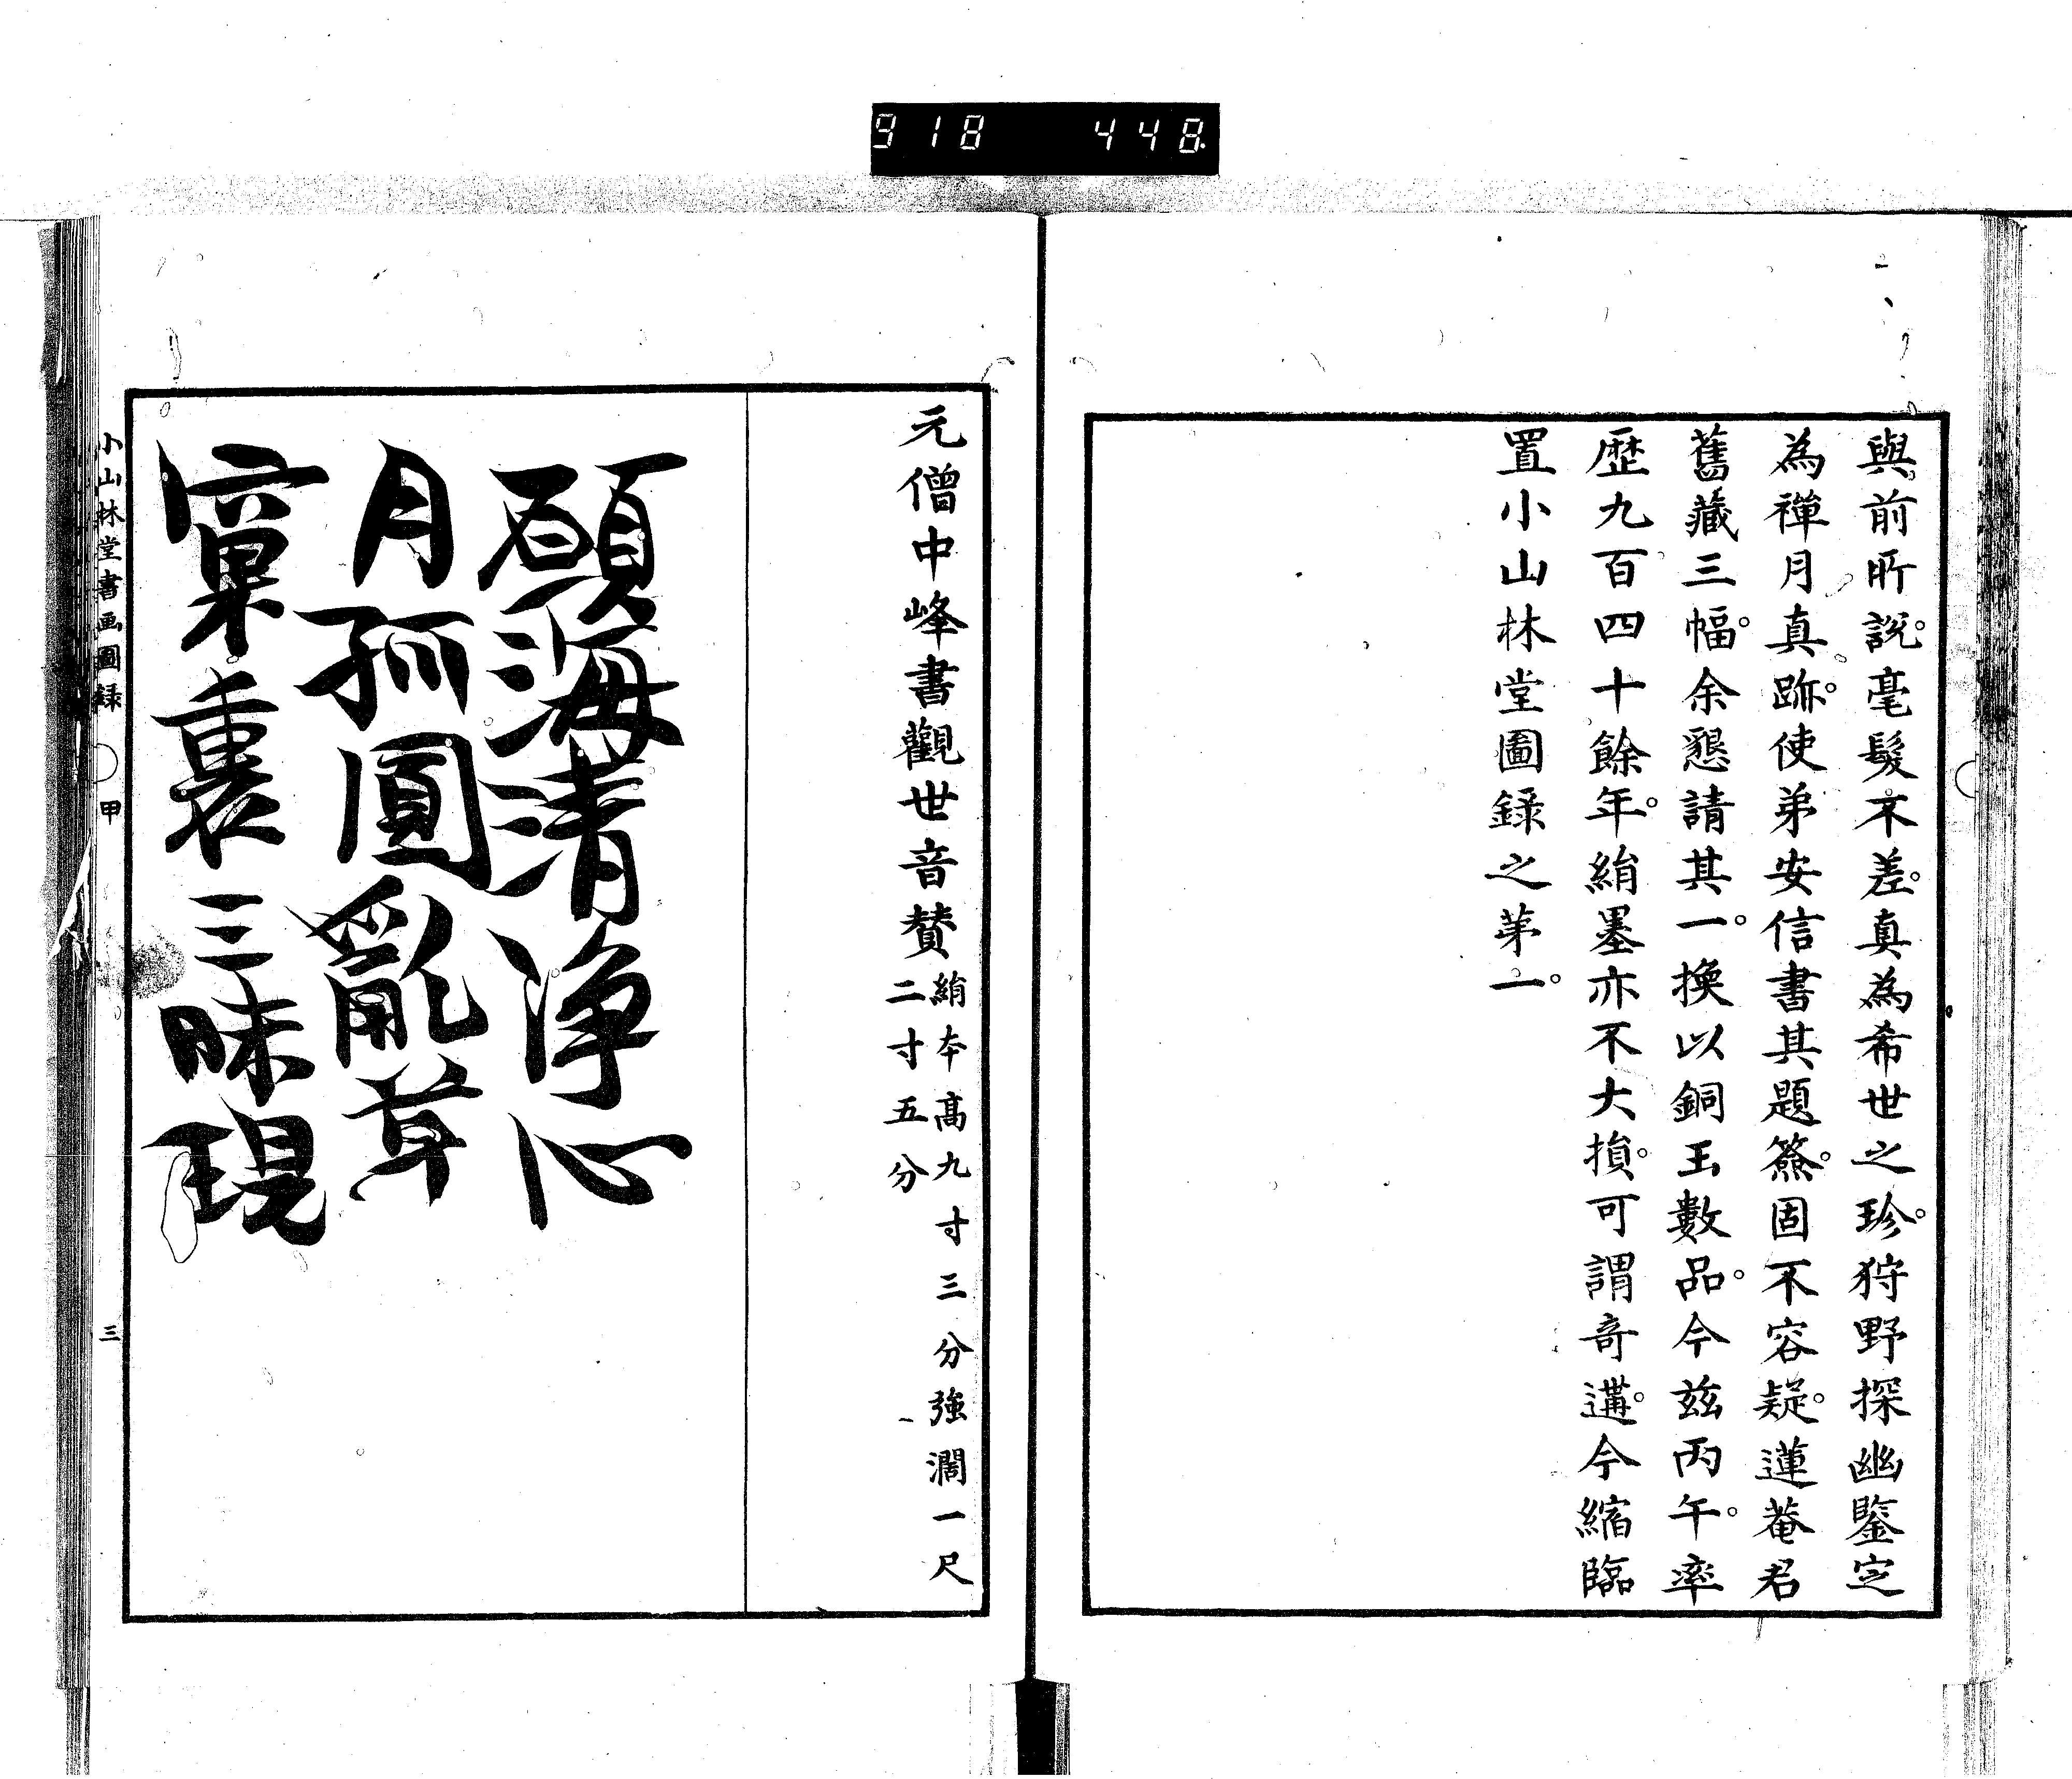 918 448
與前所説。毫髮不差。真為希世之珍。狩野探幽鑒定
為禪月真跡。使弟安信書其題簽。固不容疑。蓮菴君
舊藏三幅。余懇請其一。換以銅玉數品。今玆丙午。率
歴九百四十餘年。絹墨亦不大損。可謂奇遘。今縮臨
置小山林堂圖録之苐一。
元僧中峰書觀世音贊
絹本高九寸三分強濶一尺
二寸五分
願海清淨心
月孤圓亂草
窠裏三昧現
小山林堂書画圖録 甲 三